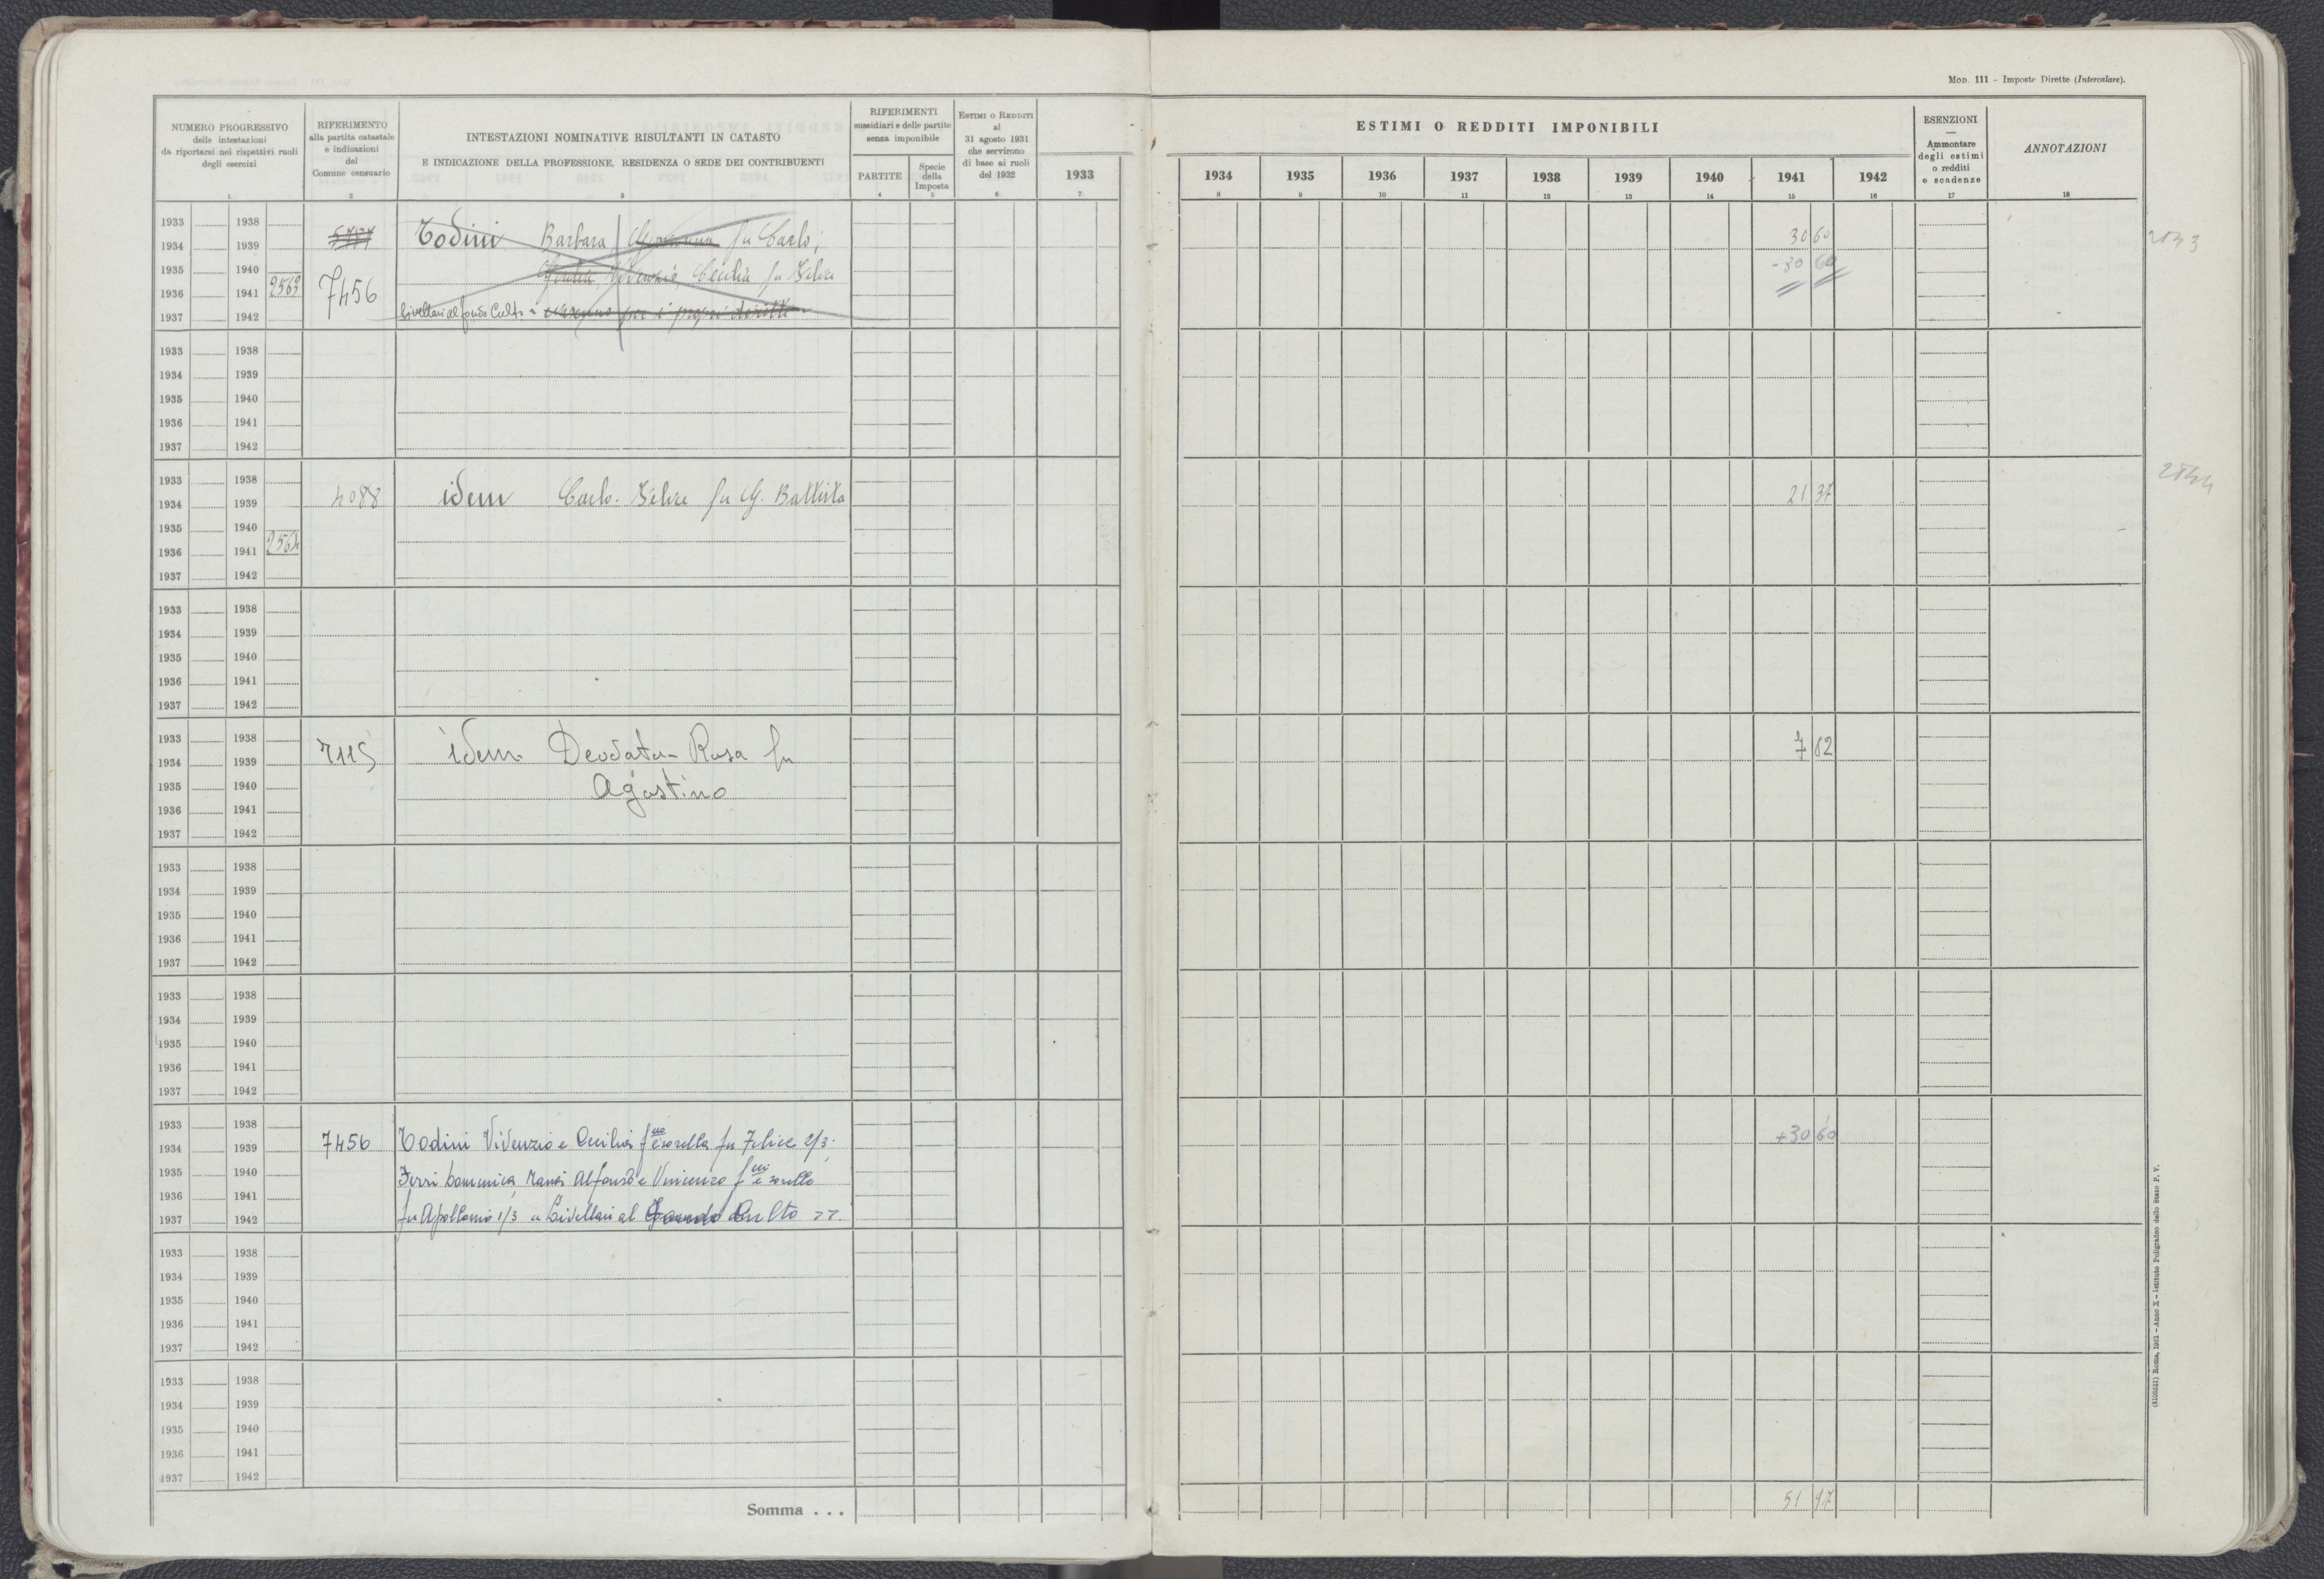 Mod. 111 - Imposte Dirette (Intercalare).
NUMERO PROGRESSIVO
delle intestazioni
da riportarsi nei rispettivi ruoli
degli esercizi
1
RIFERIMENTO
alla partita catastale
e indicazioni
del
Comune censuario
2
INTESTAZIONI NOMINATIVE RISULTANTI IN CATASTO
E INDICAZIONE DELLA PROFESSIONE, RESIDENZA O SEDE DEI CONTRIBUENTI
3
RIFERIMENTI
sussidiari e delle partite
senza imponibile
PARTITE
4
Specie
della
Imposta
5
ESTIMI O REDDITI
al
31 agosto 1931
che servirono
di base ai ruoli
del 1932
6
ESTIMI O REDDITI IMPONIBILI
1933 1934 1935 1936 1937 1938 1939 1940 1941 1942
7 8 9 10 11 12 13 14 15 16
ESENZIONI
—
Ammontare
degli estimi
o redditi
e scadenze
17
ANNOTAZIONI
18
1933 1938
1934 1939 Todini Barbara, fu Carlo; 30 60
1935 1940 Cecilia fu Felice - 30 60
1936 1941 2563 7456
1937 1942 livellari al fondo Culto = ciascuno per i propri diritti
1933 1938
1934 1939
1935 1940
1936 1941
1937 1942
1933 1938
1934 1939 4088 idem Carlo. Felice fu G. Battista 21 37
1935 1940
1936 1941 2564
1937 1942
1933 1938
1934 1939
1935 1940
1936 1941
1937 1942
1933 1938
1934 1939 7115 idem Deodata-Rosa fu 7 82
1935 1940 Agostino
1936 1941
1937 1942
1933 1938
1934 1939
1935 1940
1936 1941
1937 1942
1933 1938
1934 1939
1935 1940
1936 1941
1937 1942
1933 1938
1934 1939 7456 Todini Videnzio e Cecilia sorella fu Felice 2/3; +30 60
1935 1940 Alfonso e Vincenzo e sorella
1936 1941
1937 1942 fu Apollonio 1/3 = Livellari al Fondo Culto
1933 1938
1934 1939
1935 1940
1936 1941
1937 1942
1933 1938
1934 1939
1935 1940
1936 1941
1937 1942
Somma . . . 51 97
(4100551) Roma, 1931 - Anno X - Istituto Poligrafico dello Stato P. V.